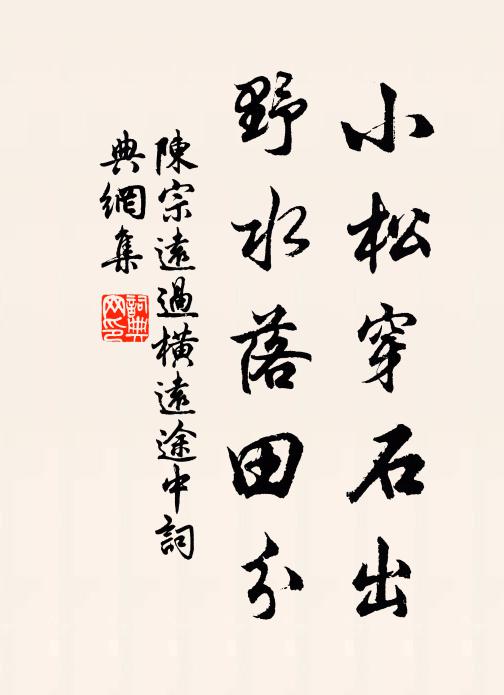 小松穿石出
野水落田分
陳宗遠過橫遠途中詞
典網集
詞典
网印